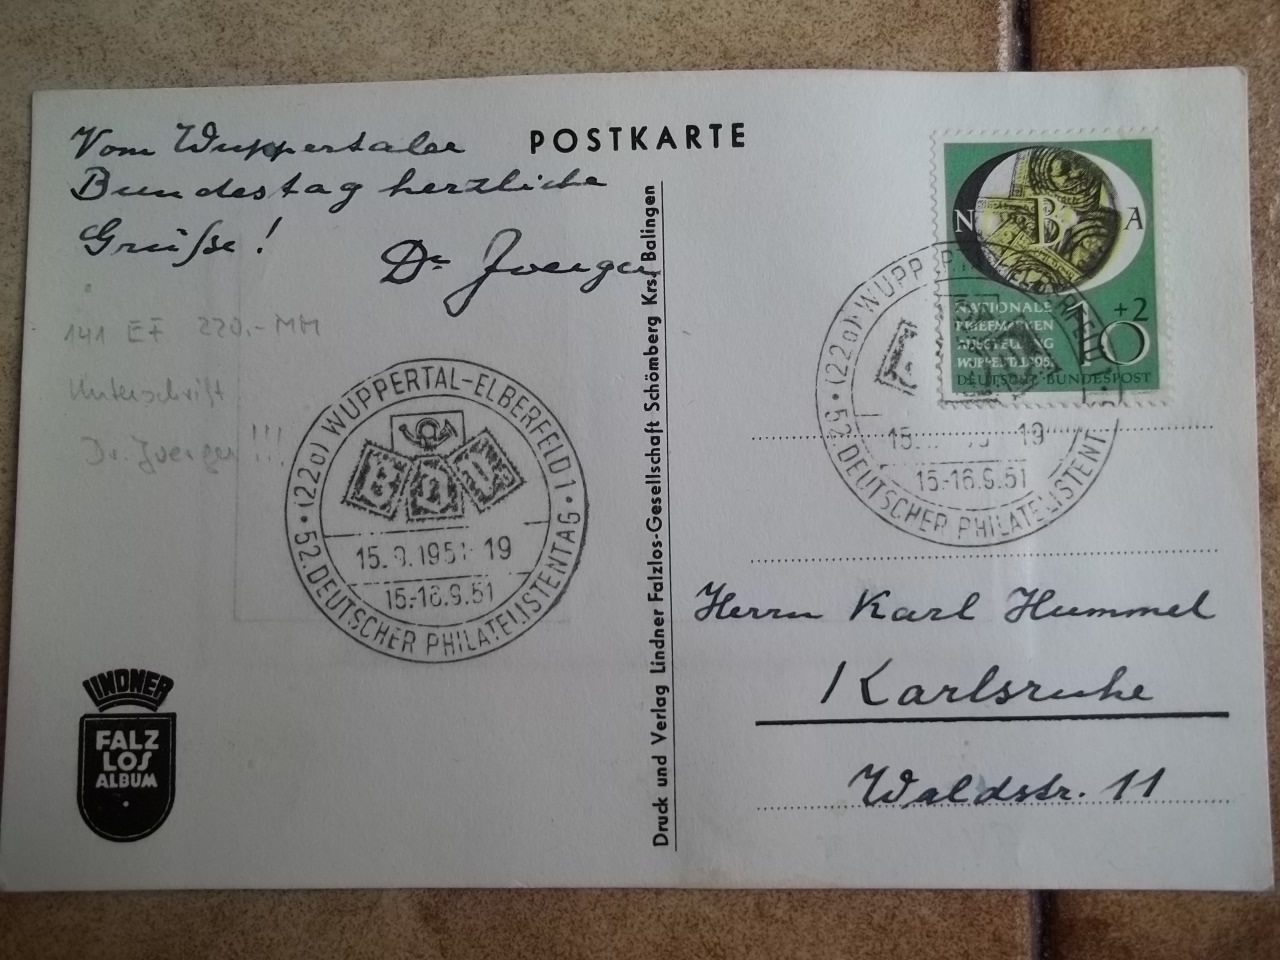 Vom Wuppertaler
Bundestag herzliche
Grüße!
Dr Joerger
141 EF 220,- MM
Unterschrift
Dr. Joerger !!!
(22a) WUPPERTAL-ELBERFELD 1
15.9.1951 - 19
15.-16.9.51
52. DEUTSCHER PHILATELISTENTAG
LINDNER
FALZ
LOS
ALBUM
POSTKARTE
Druck und Verlag Lindner Falzlos-Gesellschaft Schömberg Krs. Balingen
N B A
NATIONALE
BRIEFMARKEN
AUSSTELLUNG
WUPPERTAL 1951
10 +2
DEUTSCHE BUNDESPOST
(22a) WUPPERTAL-ELBERFELD 1
15. 19
15.-16.9.51
52. DEUTSCHER PHILATELISTENT
Herrn Karl Hummel
Karlsruhe
Waldstr. 11